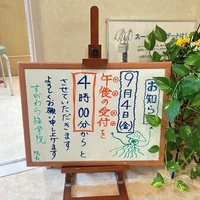 お知らせ
9月4日(金)
午後の受付を
4時00分からと
させていただきます
よろしくお願い申し上げます
すがわら接骨院